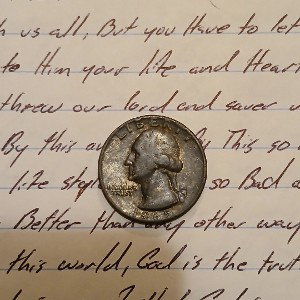 h us all, But you Have to let
te Him your life and Heart
threw our lord and saver
By this a This so
life style so Bad a
Better than any other way
this world, God is the trut
LIBERTY